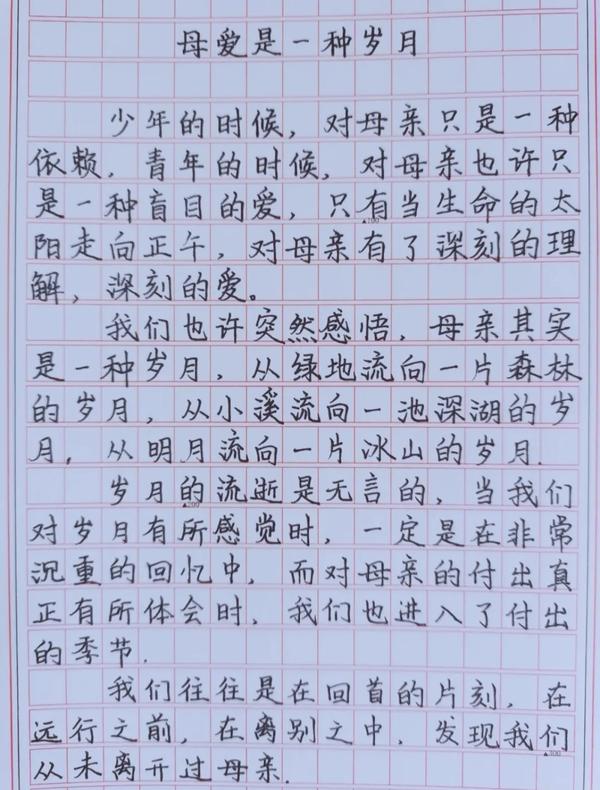 母爱是一种岁月
少年的时候，对母亲只是一种
依赖，青年的时候，对母亲也许只
是一种盲目的爱，只有当生命的太
阳走向正午，对母亲有了深刻的理
解，深刻的爱。
我们也许突然感悟，母亲其实
是一种岁月，从绿地流向一片森林
的岁月，从小溪流向一池深湖的岁
月，从明月流向一片冰山的岁月.
岁月的流逝是无言的，当我们
对岁月有所感觉时，一定是在非常
沉重的回忆中，而对母亲的付出真
正有所体会时，我们也进入了付出
的季节.
我们往往是在回首的片刻，在
远行之前，在离别之中，发现我们
从未离开过母亲.
▲300